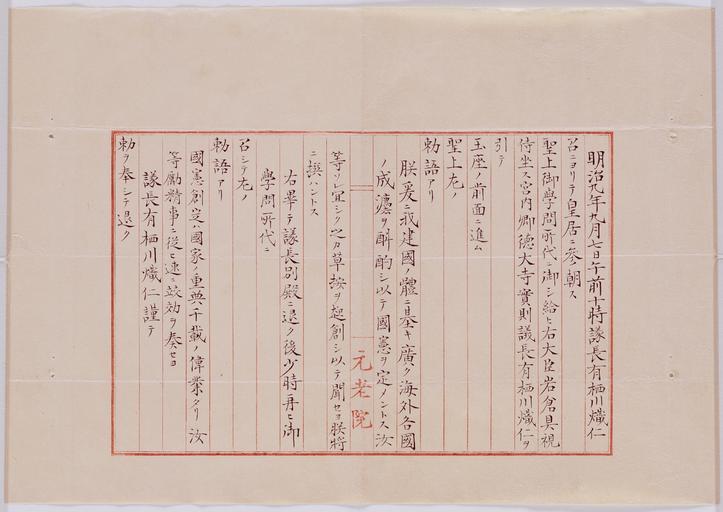 明治九年九月七日午前十時議長有栖川熾仁
召ニヨリテ皇居ニ参朝ス
聖上御學問所代ニ御シ給ヒ右大臣岩倉具視
侍坐ス宮内卿徳大寺實則議長有栖川熾仁ヲ
引テ
玉座ノ前面ニ進ム
聖上左ノ
勅語アリ
朕爰ニ我建國ノ體ニ基キ廣ク海外各國
ノ成灋ヲ斟酌シ以テ國憲ヲ定メントス汝
元老院
等ソレ宜シク之カ草按ヲ起創シ以テ聞セヨ朕將
ニ撰ハントス
右畢テ議長別殿ニ退ク後少時再ヒ御
學問所代ニ
召シテ左ノ
勅語アリ
國憲創定ハ國家ノ重典千載ノ偉業タリ汝
等勵精事ニ從ヒ速ニ竣効ヲ奏セヨ
議長有栖川熾仁謹テ
勅ヲ奉シテ退ク